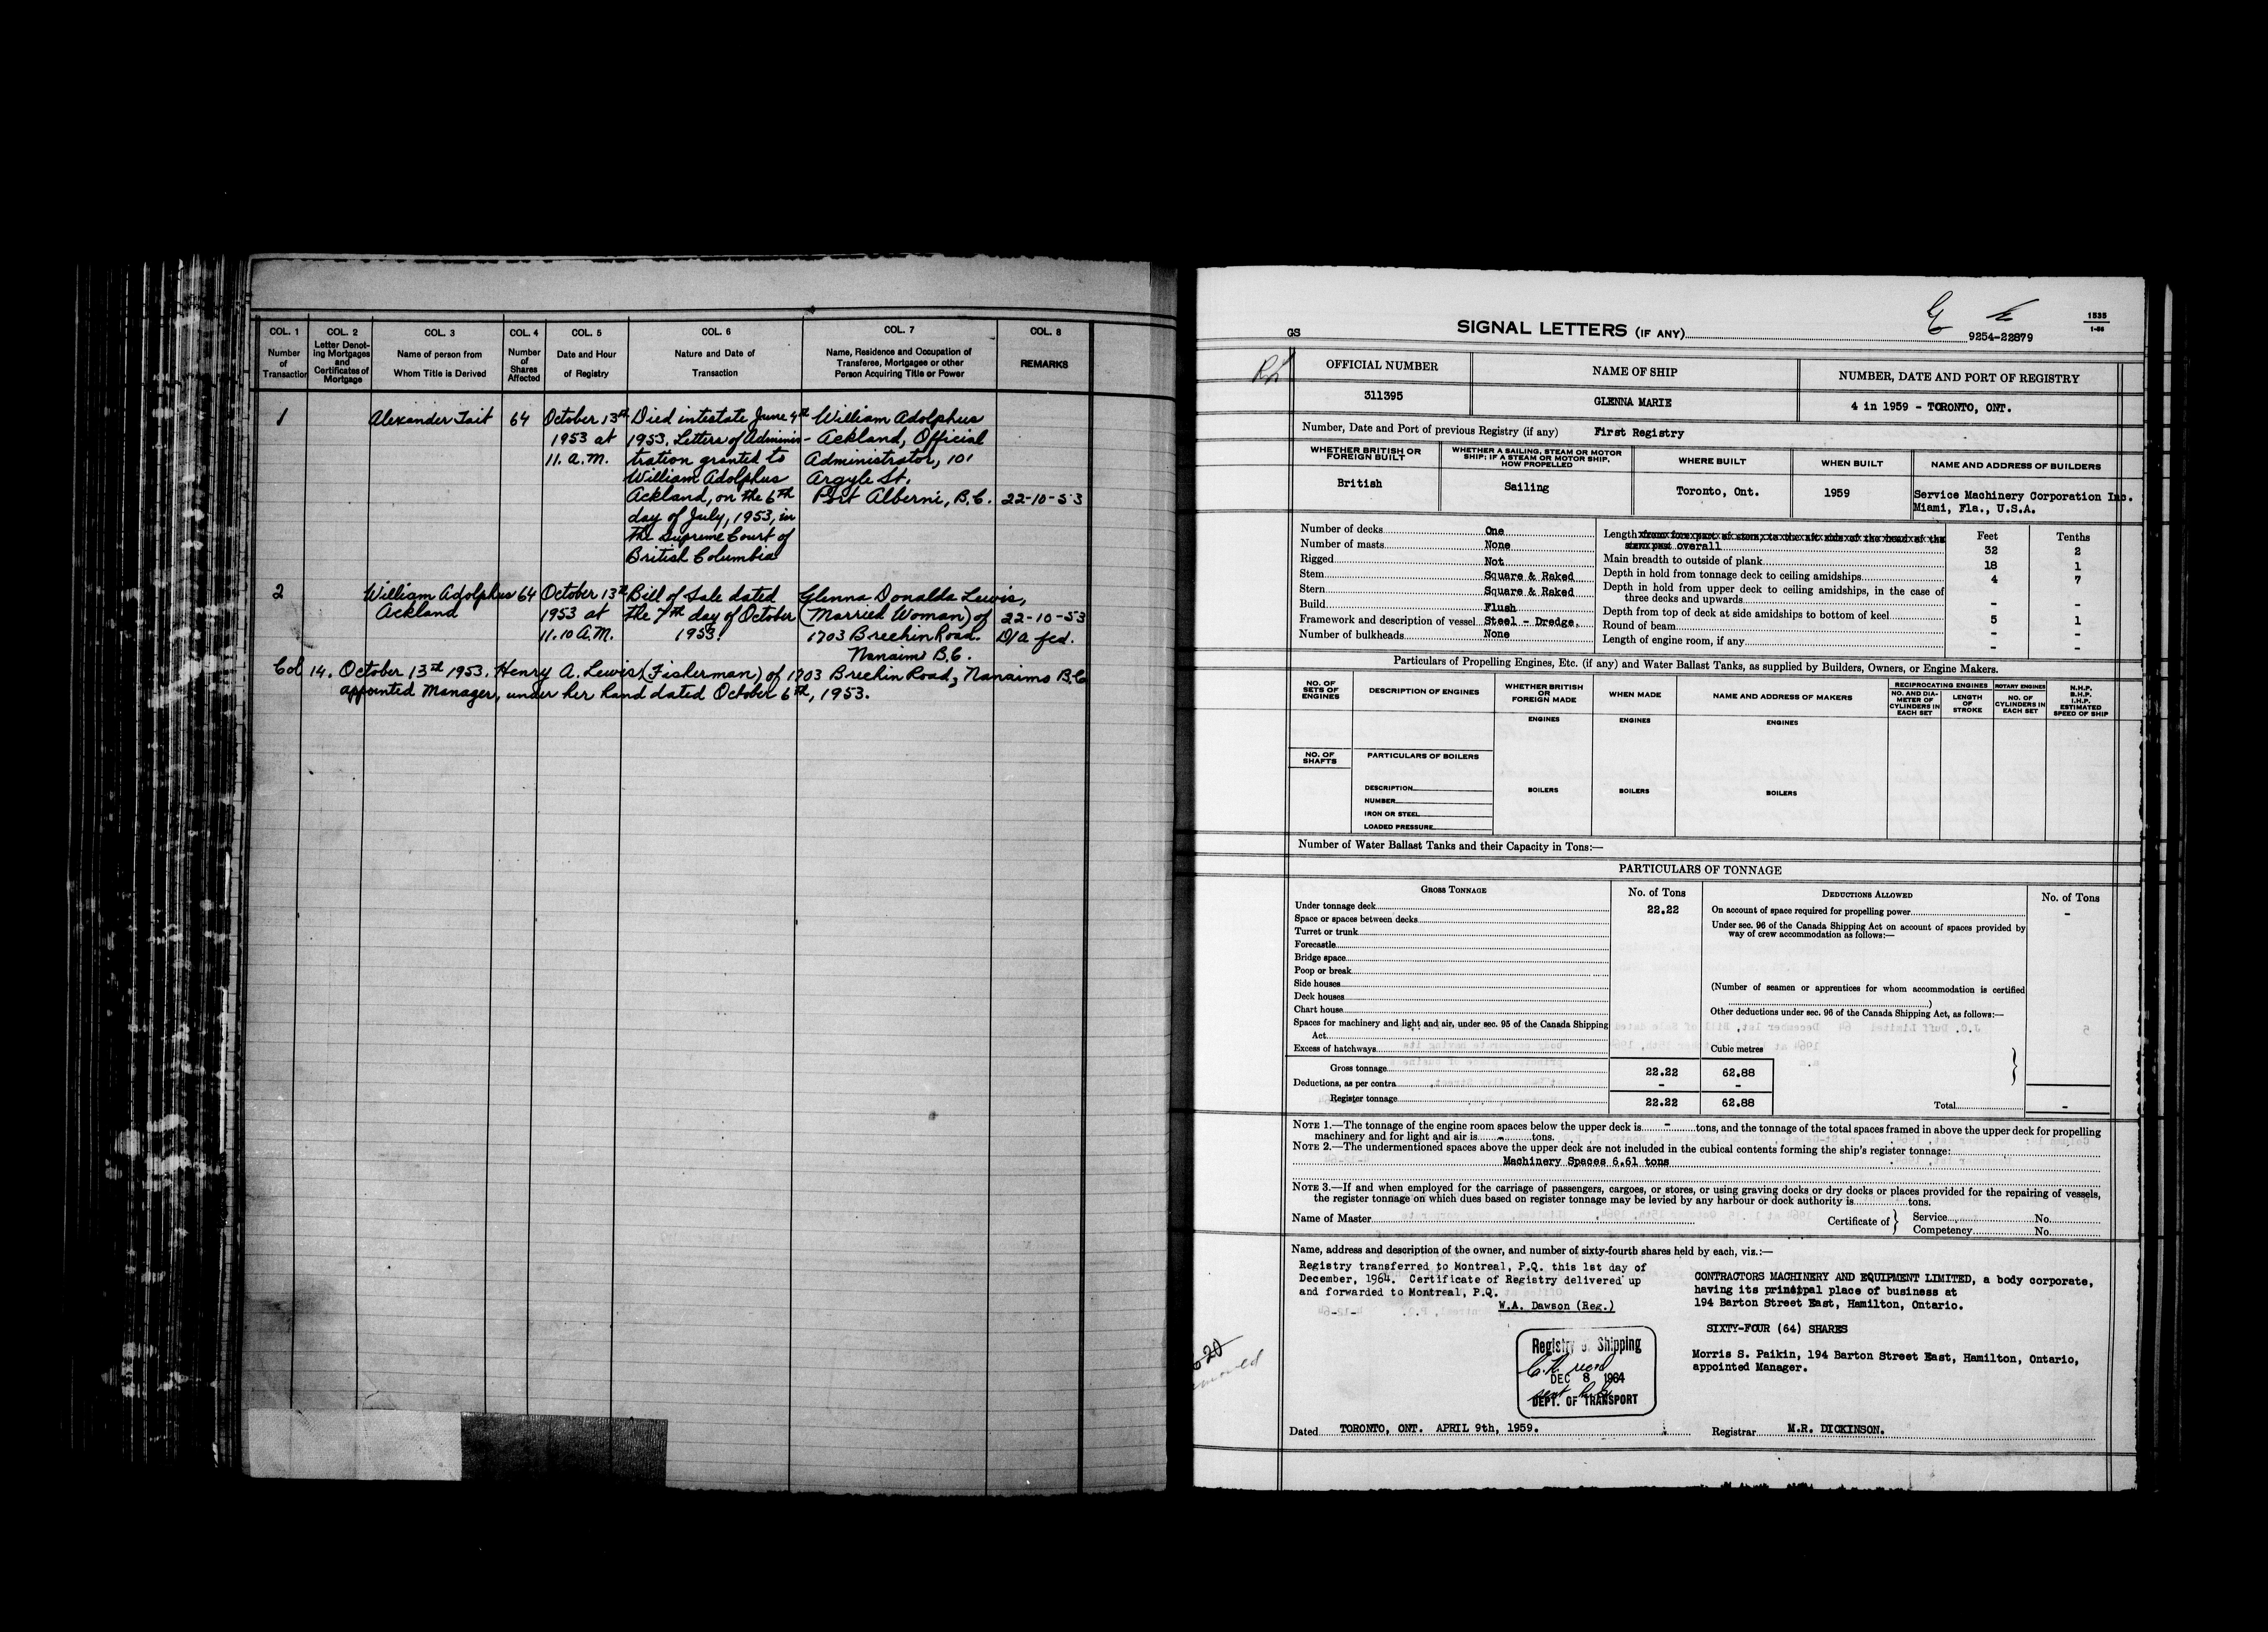 COL. 1 COL. 2 COL. 3 COL. 4 COL. 5 COL. 6 COL. 7 COL. 8
Number of Transaction
Letter Denoting Mortgages and Certificates of Mortgage
Name of person from Whom Title is Derived
Number of Shares Affected
Date and Hour of Registry
Nature and Date of Transaction
Name, Residence and Occupation of Transferee, Mortgagee or other Person Acquiring Title or Power
REMARKS
1 Alexander Tait 64 October 13th Died intestate June 4th William Adolphus
1953 at 1953. Letters of Adminis- Ackland, Official
11. a.m. tration granted to Administrator, 101
William Adolphus Argyle St.
Ackland, on the 6th Port Alberni, B.C. 22-10-53
day of July, 1953, in
the Supreme Court of
British Columbia
2 William Adolphus 64 October 13th Bill of Sale dated Glenna Donalda Lewis,
Ackland 1953 at the 7th day of October (Married Woman) of 22-10-53
11.10 A.M. 1953. 1703 Brechin Road. D/a fed.
Nanaimo B.C.
Col 14. October 13th 1953. Henry A. Lewis (Fisherman) of 1703 Brechin Road, Nanaimo B.C.
appointed Manager, under her hand dated October 6th, 1953.
GS
SIGNAL LETTERS (IF ANY)
9254-22879
1535
1-56
OFFICIAL NUMBER NAME OF SHIP NUMBER, DATE AND PORT OF REGISTRY
311395 GLENNA MARIE 4 in 1959 - TORONTO, ONT.
Number, Date and Port of previous Registry (if any) First Registry
WHETHER BRITISH OR FOREIGN BUILT
WHETHER A SAILING, STEAM OR MOTOR SHIP; IF A STEAM OR MOTOR SHIP, HOW PROPELLED
WHERE BUILT WHEN BUILT NAME AND ADDRESS OF BUILDERS
British Sailing Toronto, Ont. 1959 Service Machinery Corporation Inc.
Miami, Fla., U.S.A.
Number of decks One
Number of masts None
Rigged Not
Stem Square & Raked
Stern Square & Raked
Build Flush
Framework and description of vessel Steel - Dredge.
Number of bulkheads None
Feet Tenths
Length from fore part of stem, to the aft side of the head of the
stern post overall 32 2
Main breadth to outside of plank 18 1
Depth in hold from tonnage deck to ceiling amidships 4 7
Depth in hold from upper deck to ceiling amidships, in the case of
three decks and upwards - -
Depth from top of deck at side amidships to bottom of keel 5 1
Round of beam - -
Length of engine room, if any - -
Particulars of Propelling Engines, Etc. (if any) and Water Ballast Tanks, as supplied by Builders, Owners, or Engine Makers.
NO. OF SETS OF ENGINES
DESCRIPTION OF ENGINES
WHETHER BRITISH OR FOREIGN MADE
WHEN MADE
NAME AND ADDRESS OF MAKERS
RECIPROCATING ENGINES ROTARY ENGINES
NO. AND DIAMETER OF CYLINDERS IN EACH SET
LENGTH OF STROKE
NO. OF CYLINDERS IN EACH SET
N.H.P. B.H.P. I.H.P. ESTIMATED SPEED OF SHIP
ENGINES ENGINES ENGINES
NO. OF SHAFTS
PARTICULARS OF BOILERS
DESCRIPTION
NUMBER
IRON OR STEEL
LOADED PRESSURE
BOILERS BOILERS BOILERS
Number of Water Ballast Tanks and their Capacity in Tons:—
PARTICULARS OF TONNAGE
GROSS TONNAGE No. of Tons DEDUCTIONS ALLOWED No. of Tons
Under tonnage deck 22.22
Space or spaces between decks
Turret or trunk
Forecastle
Bridge space
Poop or break
Side houses
Deck houses
Chart house
Spaces for machinery and light and air, under sec. 95 of the Canada Shipping
Act
Excess of hatchways Cubic metres
Gross tonnage 22.22 62.88
Deductions, as per contra - -
Register tonnage 22.22 62.88
On account of space required for propelling power -
Under sec. 96 of the Canada Shipping Act on account of spaces provided by
way of crew accommodation as follows:—
(Number of seamen or apprentices for whom accommodation is certified
)
Other deductions under sec. 96 of the Canada Shipping Act, as follows:—
Total -
NOTE 1.—The tonnage of the engine room spaces below the upper deck is - tons, and the tonnage of the total spaces framed in above the upper deck for propelling
machinery and for light and air is - tons.
NOTE 2.—The undermentioned spaces above the upper deck are not included in the cubical contents forming the ship's register tonnage:
Machinery Spaces 6.61 tons
NOTE 3.—If and when employed for the carriage of passengers, cargoes, or stores, or using graving docks or dry docks or places provided for the repairing of vessels,
the register tonnage on which dues based on register tonnage may be levied by any harbour or dock authority is tons.
Name of Master Certificate of } Service No.
Competency No.
Name, address and description of the owner, and number of sixty-fourth shares held by each, viz.:—
Registry transferred to Montreal, P.Q. this 1st day of
December, 1964. Certificate of Registry delivered up
and forwarded to Montreal, P.Q.
W.A. Dawson (Reg.)
CONTRACTORS MACHINERY AND EQUIPMENT LIMITED, a body corporate,
having its principal place of business at
194 Barton Street East, Hamilton, Ontario.
SIXTY-FOUR (64) SHARES
Morris S. Paikin, 194 Barton Street East, Hamilton, Ontario,
appointed Manager.
Registry of Shipping
DEC 8 1964
DEPT. OF TRANSPORT
Dated TORONTO, ONT. APRIL 9th, 1959. Registrar M.R. DICKINSON.